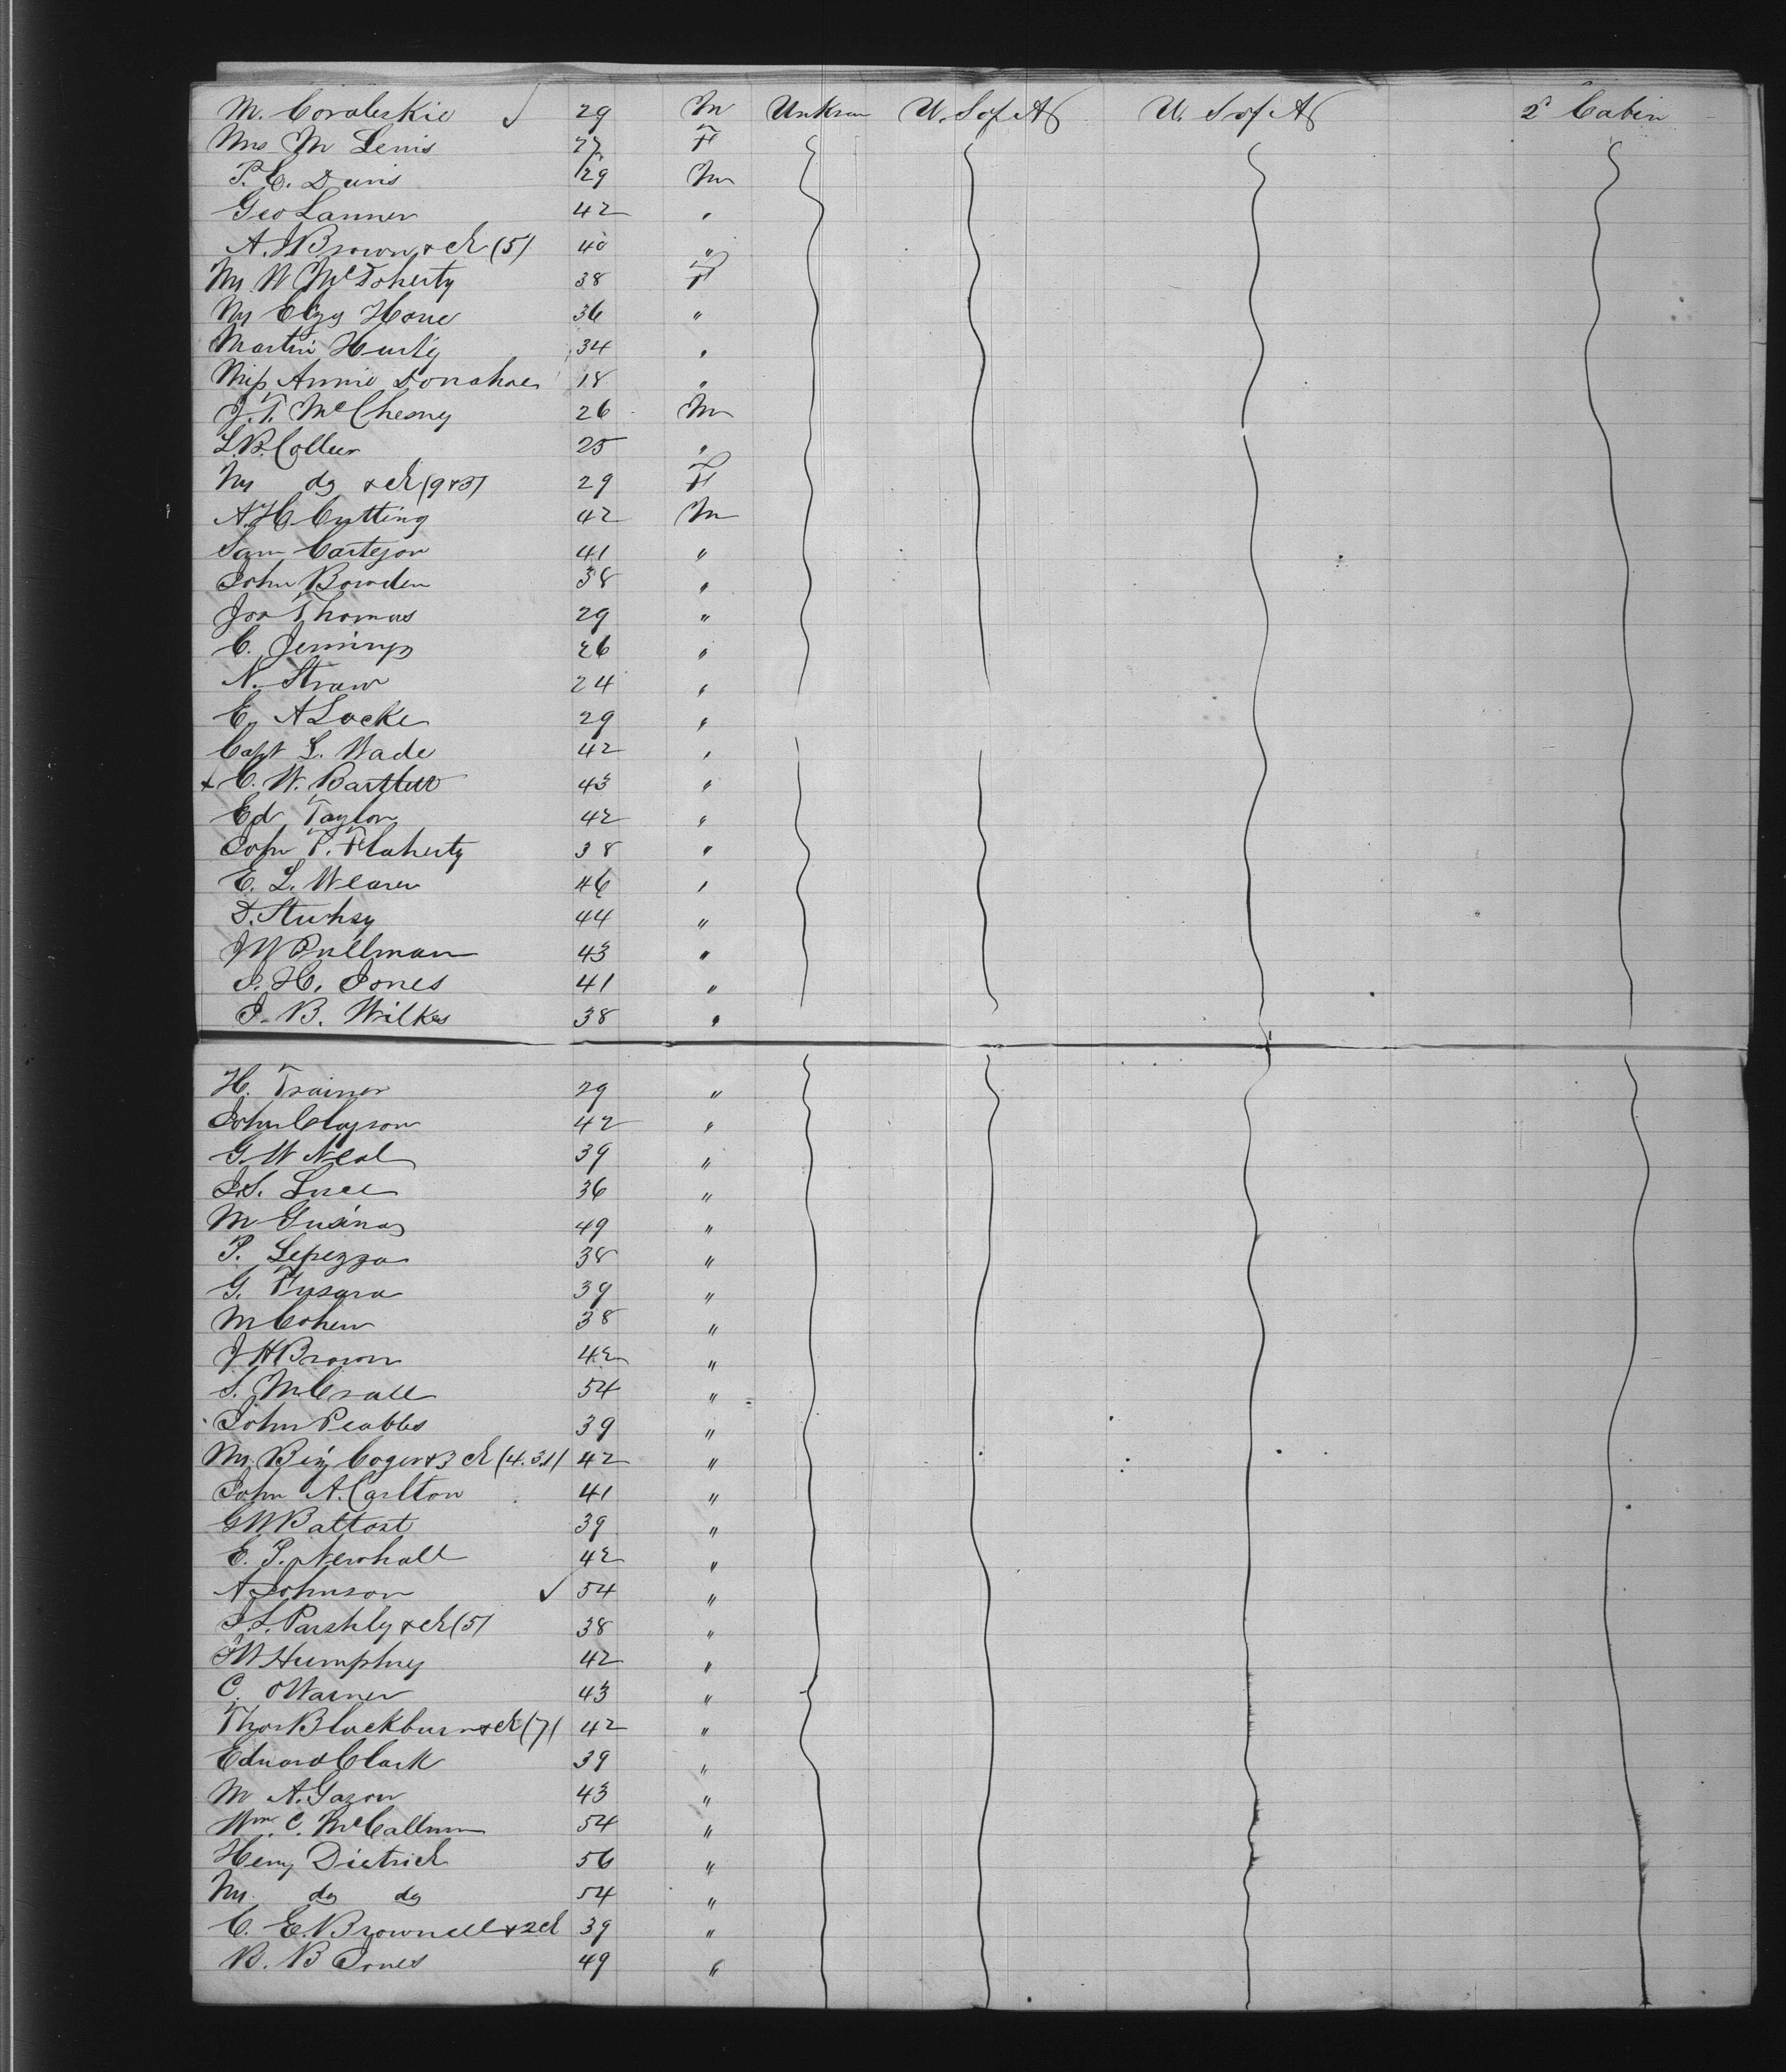 M. Coraleskie ✓ 29 M Unknow U. S of A U. S of A 2d Cabin
Mrs M Lewis 27 F
P. C. Davis 29 M
Geo Lanner 42 "
A. J Brown & ch (5) 40 "
Mrs W McDoherty 38 F
Mrs Elzy Hone 36 "
Martin Hurty 34 "
Miss Annie Donahoe 18 "
J. T. McChesny 26 M
L. B. Collier 25 "
Mrs do & ch (9 & 3) 29 F
A. H. Cutting 42 M
Sam Cartejon 41 "
John Bowden 38 "
Jos Thomas 29 "
C. Jennings 26 "
N. Straw 24 "
E. A Locke 29 "
Capt L. Wade 42 "
x C. W. Bartlett 43 "
Ed Taylor 42 "
John T. Flaherty 38 "
E. L. Wearer 46 "
D. Stuhsy 44 "
J W Pullman 43 "
J. H. Jones 41 "
J. B. Wilkes 38 "
H. Trainer 29 "
John Clayson 42 "
G. W Neal 39 "
J. S. Luce 36 "
M Gusina 49 "
P. Lepezza 38 "
G. Fusara 39 "
M Cohen 38 "
J H Brown 42 "
S. McCrall 54 "
John Peabbs 39 "
Mrs Benj Coger & 3 ch (4.3.1) 42 "
John A. Carlton 41 "
G W Battost 39 "
E. P. Newhall 42 "
A Johnson ✓ 54 "
J. L. Parshly & ch (5) 38 "
J W Humphrey 42 "
C. O Warner 43 "
Thos Blackburn & ch (7) 42 "
Edward Clark 39 "
M A. Gazon 43 "
Wm. C. McCallum 54 "
Henry Dietrich 56 "
Mrs do do 54 "
C. E. Brownell & 2 ch 39 "
B. B Jones 49 "